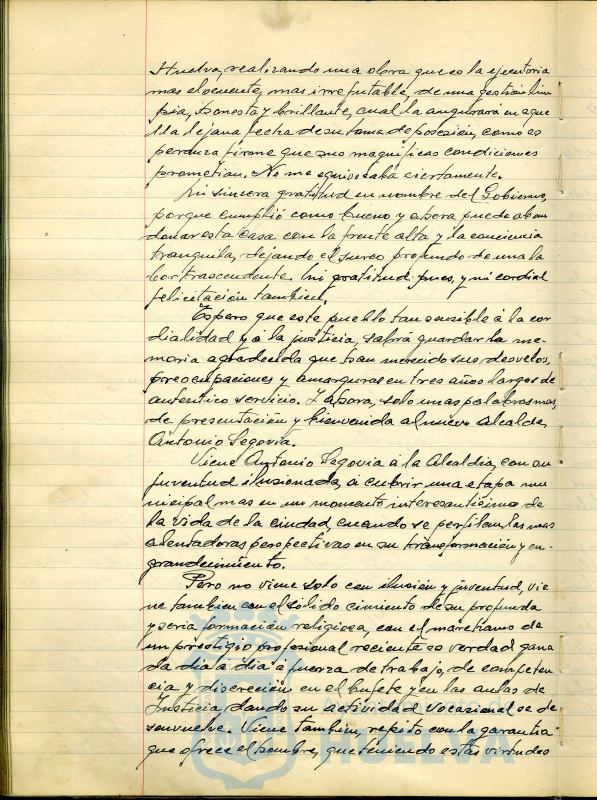 Huelva, realizando una obra que es la ejecutoria
mas elocuente, mas irrefutable, de una gestión lim
pia, honesta y brillante, cual la auguraré en aque
lla lejana fecha de su toma de posesión, como es
peranza firme que sus magnificas condiciones
prometian. No me equivocaba ciertamente.
Mi sincera gratitud en nombre del Gobierno,
porque cumplió como bueno y ahora puede aban
donar esta casa con la frente alta y la conciencia
tranquila, dejando el surco profundo de una la
bor trascendente. Mi gratitud pues, y mi cordial
felicitación tambien.
Espero que este pueblo tan sensible á la cor
dialidad y á la justicia, sabrá guardar la me-
moria agradecida que han merecido sus desvelos,
preocupaciones y amarguras en tres años largos de
autentico servicio. Y ahora, solo unas palabras mas,
de presentación y bienvenida al nuevo Alcalde,
Antonio Segovia.
Viene Antonio Segovia á la Alcaldia, con su
juventud ilusionada, á cubrir una etapa mu
nicipal mas en un momento interesantisimo de
la vida de la ciudad, cuando se perfilan las mas
alentadoras perspectivas en su transformación y en-
grandecimiento.
Pero no viene solo con ilusión y juventud, vie
ne tambien con el sólido cimiento de su profunda
y seria formación religiosa, con el de
un prestigio profesional reciente es verdad gana
do dia á dia á fuerza de trabajo, de competen
cia y discreción en el bufete y en las aulas de
Justicia, donde su actividad vocacional se de
senvuelve. Viene tambien, repito con la garantia
que ofrece el hombre, que teniendo estas virtudes
HUELVA